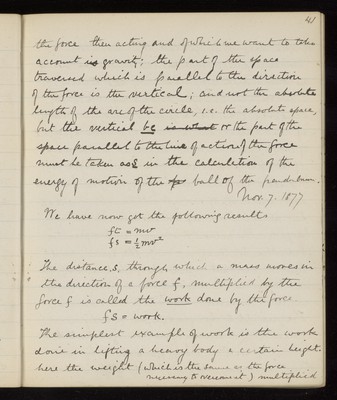 41
the force then acting and of which we want to take
account is gravity; the part of the space
traversed which is parallel to the direction
of the force is the vertical; and not the absolute
length of the arc of the circle, i.e. the absolute space,
but the vertical bc is what or the part of the
space parallel to the line of action of the force
must be taken as S in the calculation of the
energy of motion of the ball of the pendulum.
Nov. 7. 1877
We have now got the following results
ft = mv
fs = ½mv²
The distance, S, through which a mass moves in
the direction of a force f, multiplied by the
force f is called the work done by the force.
fS = work.
The simplest example of work is the work
done in lifting a heavy body a certain height.
here the weight (which is the same as the force
necessary to overcome it) multiplied